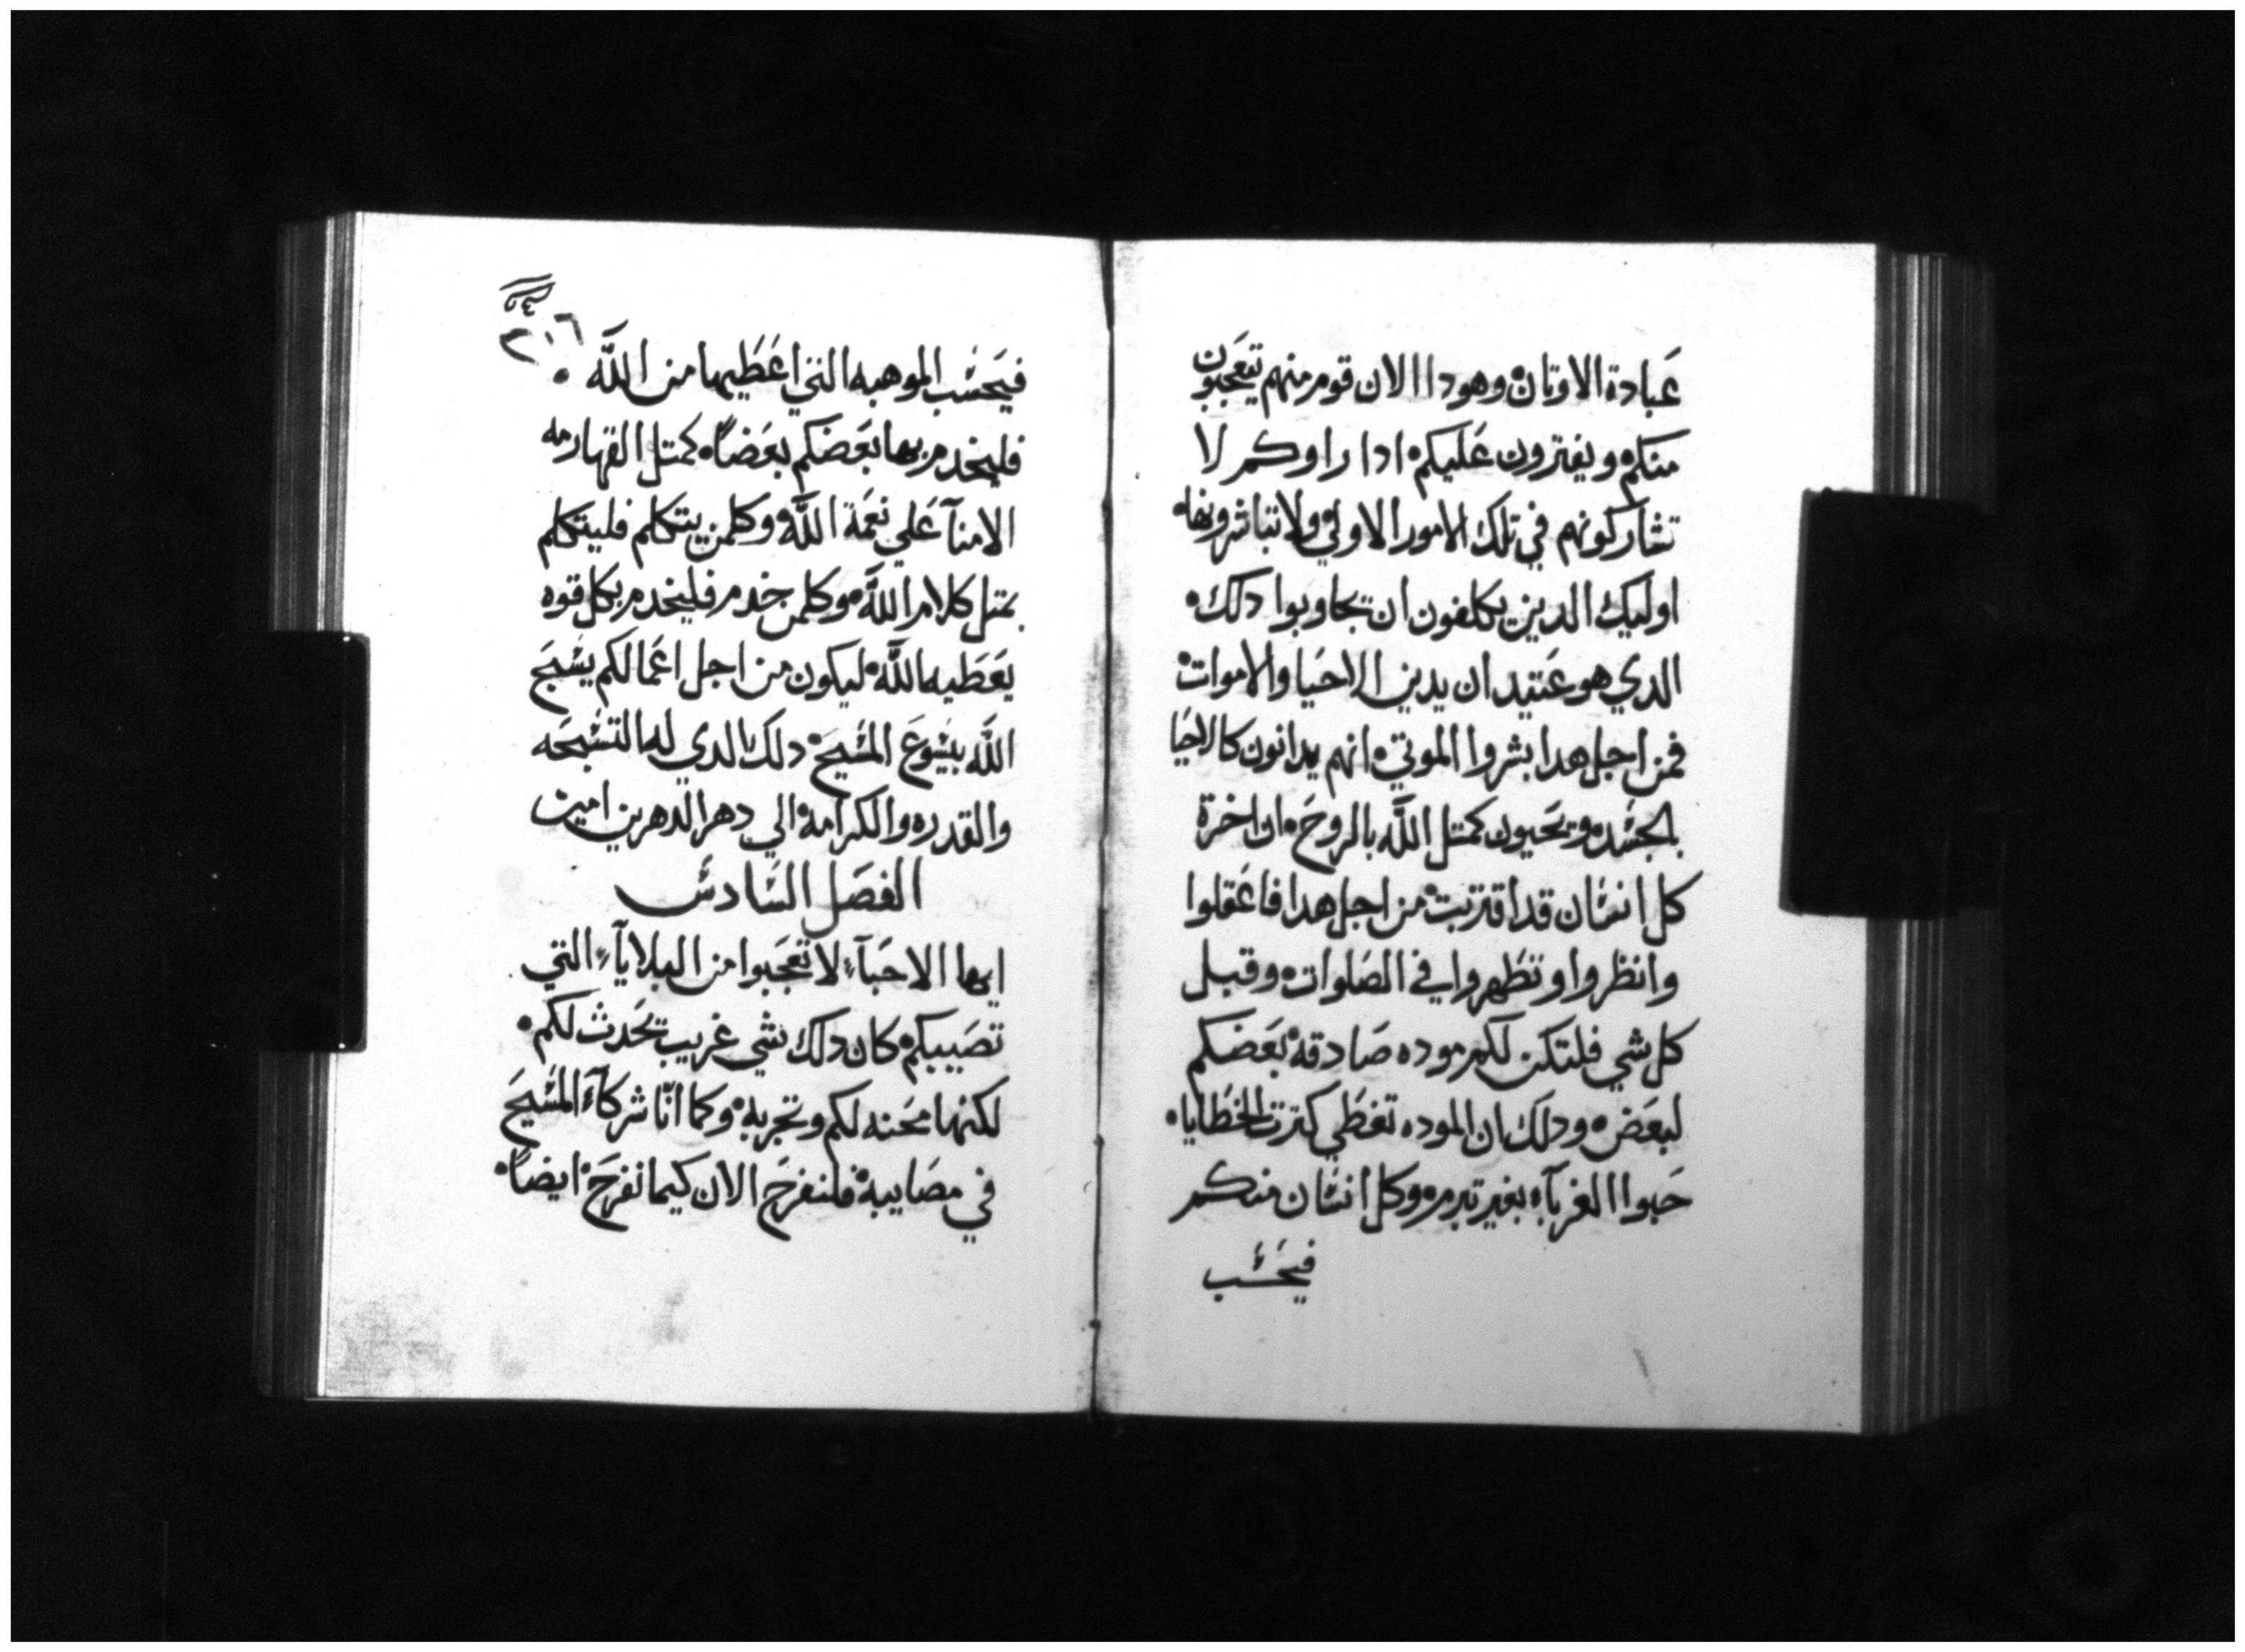 عَبادة الاوتان وهودا الان قوم منهم تيعَجبون
منكم ويفترون عَليكم ادا راوكم لا
تشاركونهم في تلك الامور الاولي ولا تباشرونها
اوليك الدين يكلفون ان تجاوبوا دلك
الدي هو عَتيد ان يدين الاحَيا والاموات
فمن اجل هدا بشروا الموتي انهم يدانون كالاحَيا
بالجسَد ويحَيون كمتل اللَّه بالروحَ ان اخرة
كل انسَان قد اقتربت من اجل هدا فاعَقلوا
وانظروا وتطَهروا في الصَلوات وقبل
كل شي فلتكن لكم موده صَادقه بعَضكم
لبعَض ودلك ان الموده تغطَي كترت الخطَايا
حَبوا الغربآء بغير تبرم وكل انسَان منكم
فيحَسَب
٢١٦
فيحَسَب الموهبه التي اعَطَيها من اللَّه
فليخدم بها بعَضكم بعَضاً كمتل القهارمه
الامنآ عَلي نعَمة اللَّه وكلمن يتكلم فليتكلم
بمتل كلام اللَّه وكلمن خدم فليخدم بكل قوه
يعَطَيه اللَّه ليكون من اجل اعَمالكم يسَبحَ
اللَّه بيسَوعَ المسَيحَ دلك الدي له التسَبحَه
والقدره والكرامة الي دهر الدهرين امين
الفصَل السَادسَ
ايها الاحَبآء لا تعَجَبوا من البلايآء التي
تصَيبكم كان دلك شي غريب تحَدث لكم
لكنها محَنه لكم وتجربة وكما انّا شركآء المسَيحَ
في مصَايبة فلنفرحَ الان كيما نفرحَ ايضاً